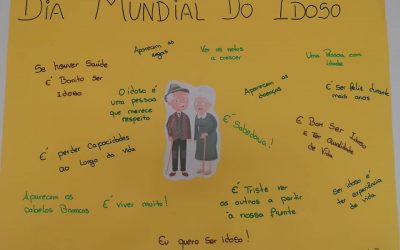 DIA MUNDIAL DO IDOSO
Aparecem as
rugas
Ver os netos
a crescer
Uma Pessoa com
idade
Se houver Saúde
É Bonito ser
Idoso
O idoso é
uma pessoa
que merece
respeito
Aparecem as
doenças
É Ser feliz durante
mais anos
É Sabedoria!
É perder Capacidades
ao longo da vida
É Bom Ser Idoso
e Ter Qualidade
de Vida
Aparecem os
Cabelos Brancos
É viver muito!
É Triste ver
os outros a partir
à nossa frente
Ser idoso é
ter experiência
de vida
Eu quero Ser Idoso!